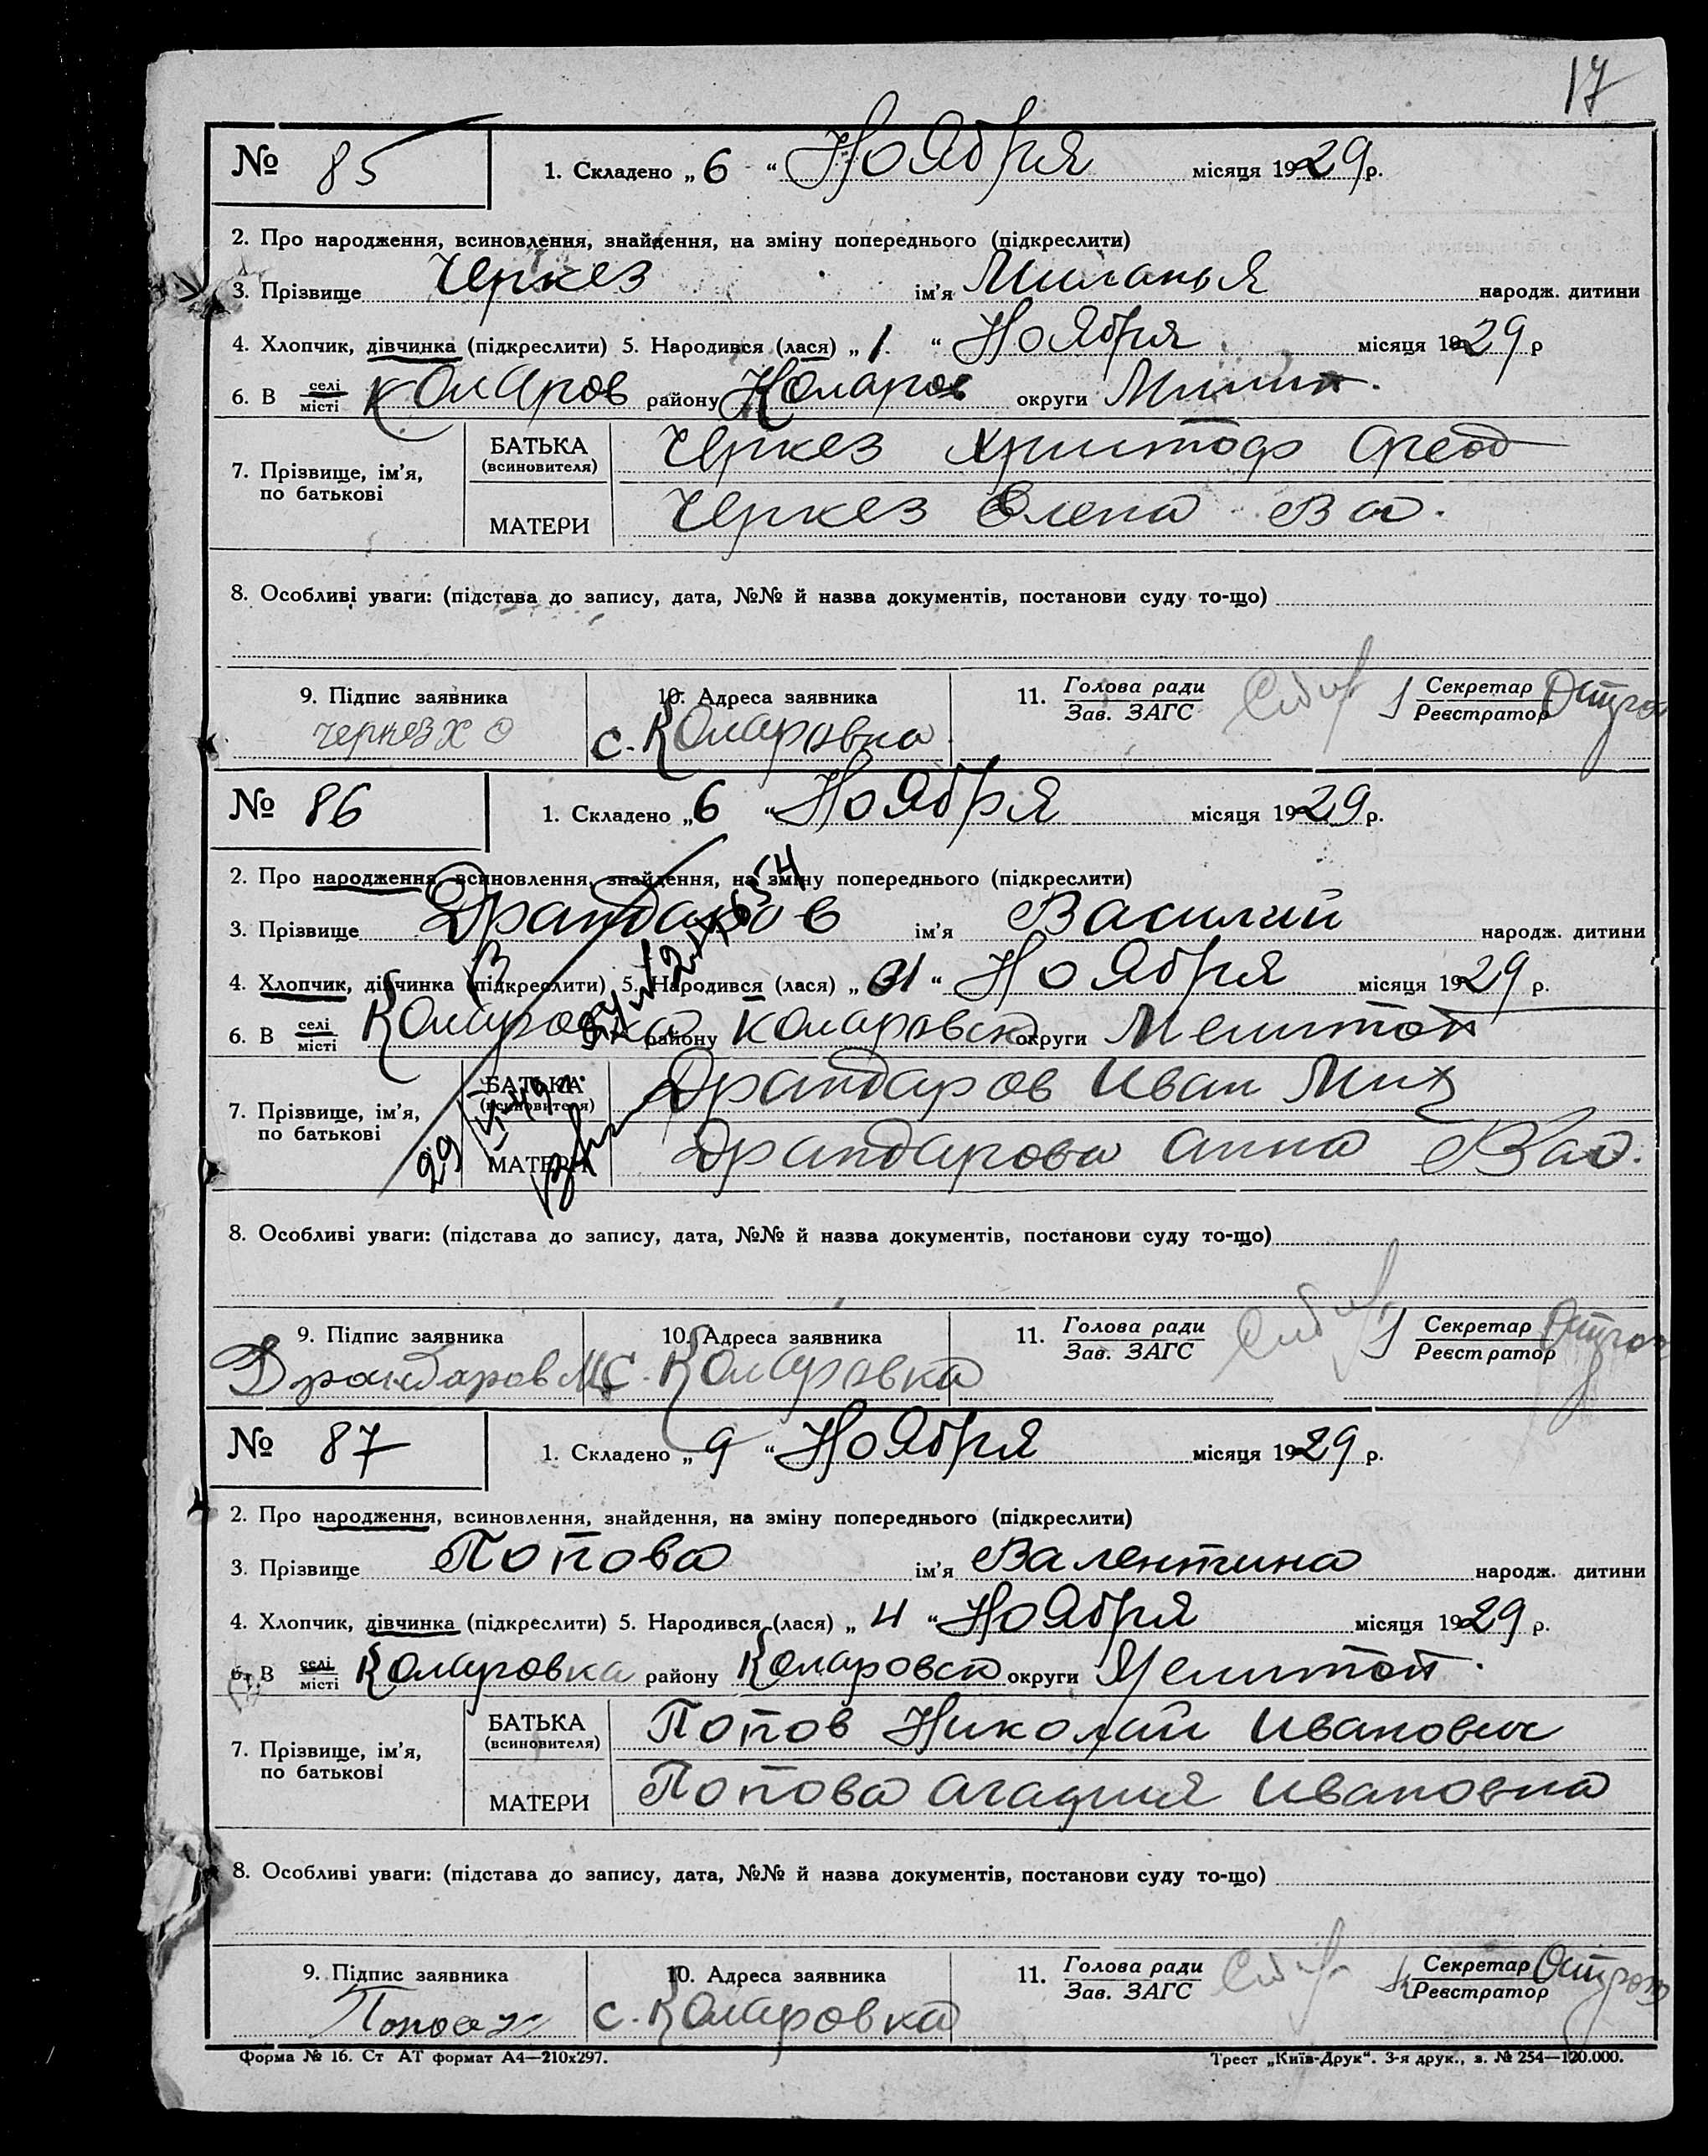 17
№ 85 1. Складено „6“ Ноября місяця 1929 р.
2. Про народження, всиновлення, знайдення, на зміну попереднього (підкреслити)
3. Прізвище Черкез ім'я Миланья народж. дитини
4. Хлопчик, дівчинка (підкреслити) 5. Народився (лася) „1“ Ноября місяця 1929 р
6. В селі місті Коларов району Коларов округи
7. Прізвище, ім'я, по батькові БАТЬКА (всиновителя) Черкез Христофор
МАТЕРИ Черкез Елена Ва.
8. Особливі уваги: (підстава до запису, дата, №№ й назва документів, постанови суду то-що)
9. Підпис заявника 10. Адреса заявника 11. Голова ради Зав. ЗАГС Секретар Реєстратор
Черкез Х с. Коларовка
№ 86 1. Складено „6“ Ноября місяця 1929 р.
2. Про народження, всиновлення, знайдення, на зміну попереднього (підкреслити)
3. Прізвище Драндаров ім'я Василий народж. дитини
4. Хлопчик, дівчинка (підкреслити) 5. Народився (лася) „31“ Ноября місяця 1929 р.
6. В селі місті Коларовка району Коларовск округи Мелитоп
7. Прізвище, ім'я, по батькові БАТЬКА (всиновителя) Драндаров Иван Мих
МАТЕРИ Драндарова Анна Вас.
8. Особливі уваги: (підстава до запису, дата, №№ й назва документів, постанови суду то-що)
9. Підпис заявника 10. Адреса заявника 11. Голова ради Зав. ЗАГС Секретар Реєстратор
Драндаров с. Коларовка
№ 87 1. Складено „9“ Ноября місяця 1929 р.
2. Про народження, всиновлення, знайдення, на зміну попереднього (підкреслити)
3. Прізвище Попова ім'я Валентина народж. дитини
4. Хлопчик, дівчинка (підкреслити) 5. Народився (лася) „4“ Ноября місяця 1929 р.
6. В селі місті Коларовка району Коларовск округи Мелитоп.
7. Прізвище, ім'я, по батькові БАТЬКА (всиновителя) Попов Николай Иванович
МАТЕРИ Попова Ивановна
8. Особливі уваги: (підстава до запису, дата, №№ й назва документів, постанови суду то-що)
9. Підпис заявника 10. Адреса заявника 11. Голова ради Зав. ЗАГС Секретар Реєстратор
Попов с. Коларовка
Форма № 16. Ст АТ формат А4—210х297. Трест „Київ-Друк“. 3-я друк., з. № 254—120.000.